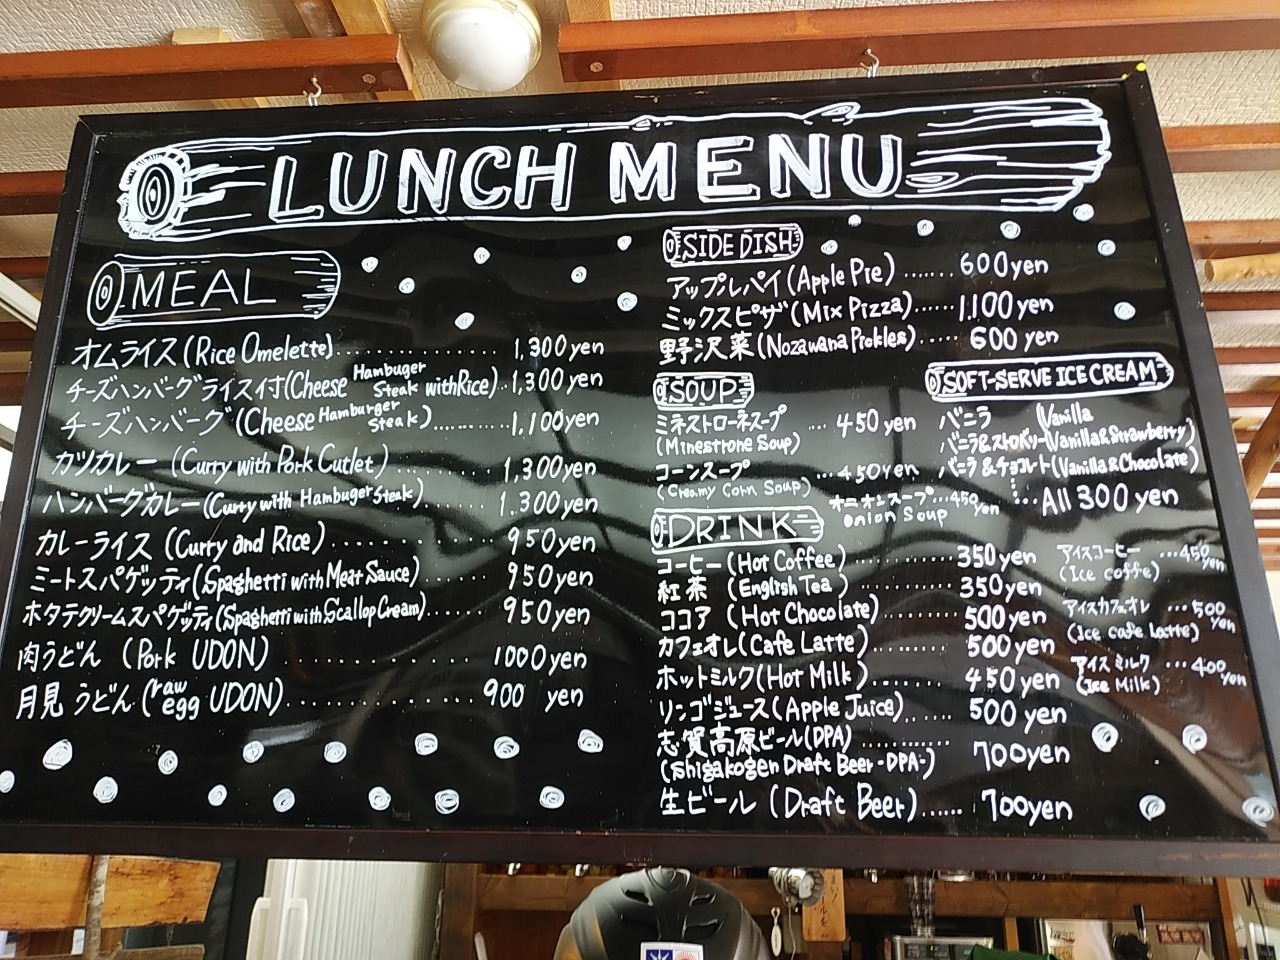 LUNCH MENU
MEAL
オムライス(Rice Omelette)............... 1,300 yen
チーズハンバーグライス付(Cheese Hambuger Steak with Rice)..1,300 yen
チーズハンバーグ(Cheese Hamburger Steak)........... 1,100yen
カツカレー (Curry with Pork Cutlet)........... 1,300yen
ハンバーグカレー(Curry with Hambuger Steak)....... 1.300yen
カレーライス (Curry and Rice)............ 950yen
ミートスパゲッティ(Spaghetti with Meat Sauce)...... 950yen
ホタテクリームスパゲッティ(Spaghetti with Scallop Cream)...... 950yen
肉うどん (Pork UDON)............ 1000yen
月見うどん(raw egg UDON)............ 900 yen
SIDE DISH
アップルパイ(Apple Pie)....... 600yen
ミックスピザ(Mix Pizza)...... 1,100 yen
野沢菜(Nozawana Pickles)..... 600 yen
SOUP
ミネストローネスープ .... 450 yen
(Minestrone Soup)
コーンスープ ...450yen
(Creamy Corn Soup)
オニオンスープ...450yen
Onion Soup
SOFT-SERVE ICE CREAM
バニラ (Vanilla
バニラ&ストロベリー(Vanilla&Strawberry)
バニラ&チョコレト(Vanilla&Chocolate)
....All 300 yen
DRINK
コーヒー(Hot Coffee)........... 350yen
紅茶 (English Tea)........... 350yen
ココア (Hot Chocolate)......... 500yen
カフェオレ(Cafe Latte)......... 500yen
ホットミルク(Hot Milk)......... 450yen
リンゴジュース(Apple Juice)...... 500 yen
志賀高原ビール(DPA)........... 700yen
(Shigakogen Draft Beer-DPA-)
生ビール (Draft Beer)...... 700yen
アイスコーヒー ...450yen
(Ice coffe)
アイスカフェオレ ...500 yen
(Ice cafe Latte)
アイスミルク ...400yen
(Ice Milk)